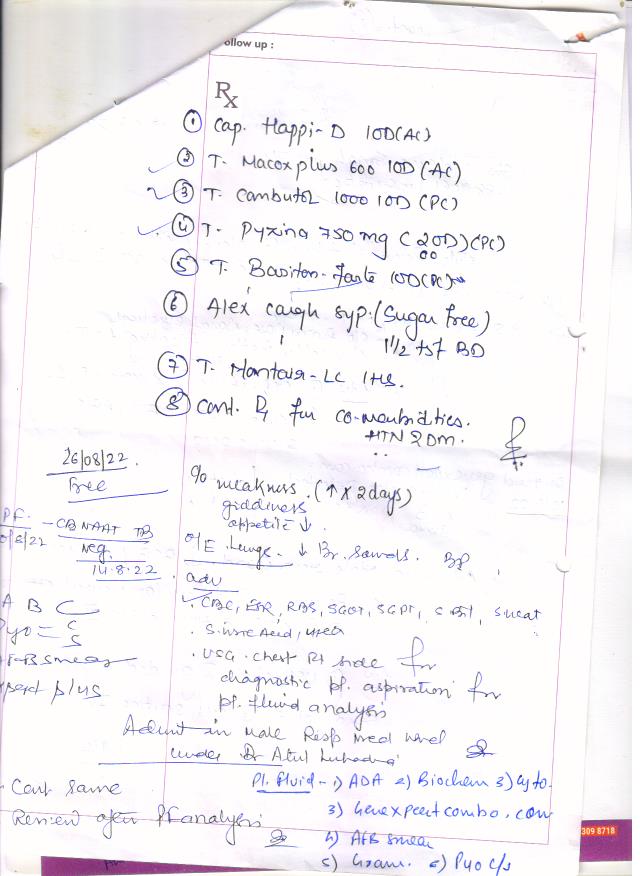 ollow up :
Rx
① Cap. Happi-D 1OD(AC)
② T. Macox plus 600 1OD (AC)
③ T. Combutol 1000 1OD (PC)
④ T. Pyzina 750 mg (2OD)(PC)
⑤ T. Forte 1OD(PC)
⑥ Alex cough syp. (Sugar free)
1 1/2 tsf BD
⑦ T. Montair-LC 1HS.
⑧ Cont. Rx for co-morbidities.
HTN 2DM.
26/08/22.
free
c/o weakness. (↑ x 2 days)
giddiness
appetite ↓.
PF. - CBNAAT TB
/8/22 Neg.
14.8.22
o/E. Lungs. ↓ Br. Sounds.
adv
A B C
. CBC, ESR, RBS, SGOT, SGPT, S.
Pyo = C/S
. S. Uric Acid, urea
AFB smear
. USG. chest Rt side for
diagnostic pl. aspiration for
pl. fluid analysis
xpert plus
Admit in Male Resp Med ward
under Dr Atul Luhadia
Pl. fluid - 1) ADA 2) Biochem 3) Cyto.
- Cont same
3) Genexpert combo.
Review after PF analysis
4) AFB smear
5) Gram. 6) Pyo C/s
309 8718